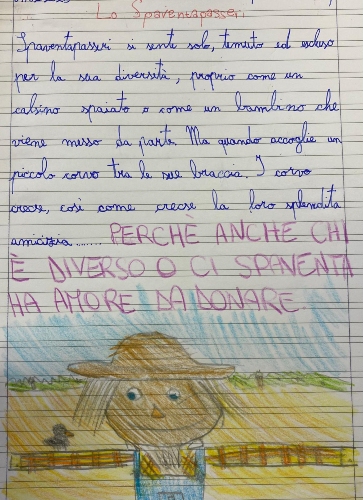 Lo Spaventapasseri
Spaventapasseri si sente solo, temuto ed escluso
per la sua diversità, proprio come un
calzino spaiato o come un bambino che
viene messo da parte. Ma quando accoglie un
piccolo corvo tra le sue braccia. I corvo
cresce, così come cresce la loro splendida
amicizia........ PERCHÈ ANCHE CHI
È DIVERSO O CI SPAVENTA
HA AMORE DA DONARE.